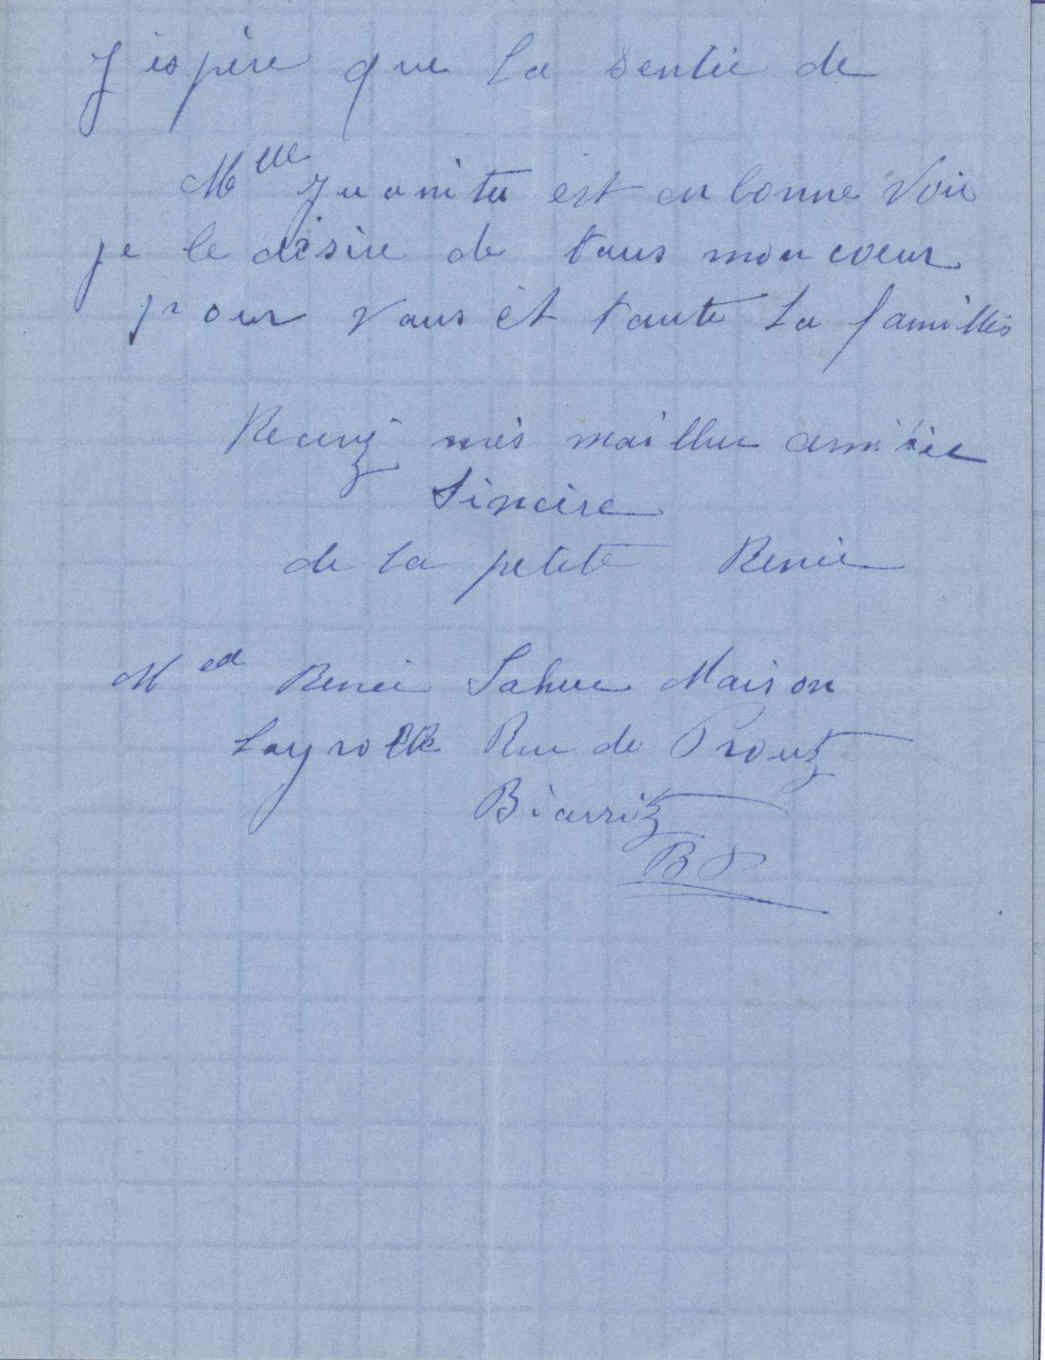 J'espère que la sentée de
Mlle Juanita est en bonne voie
je le désire de tous mon coeur
pour vous et toute la familles
Recevez mes meilleur amitiée
Sincère
de la petite Renée
Renée Maison
Rue de
Biarritz
BP